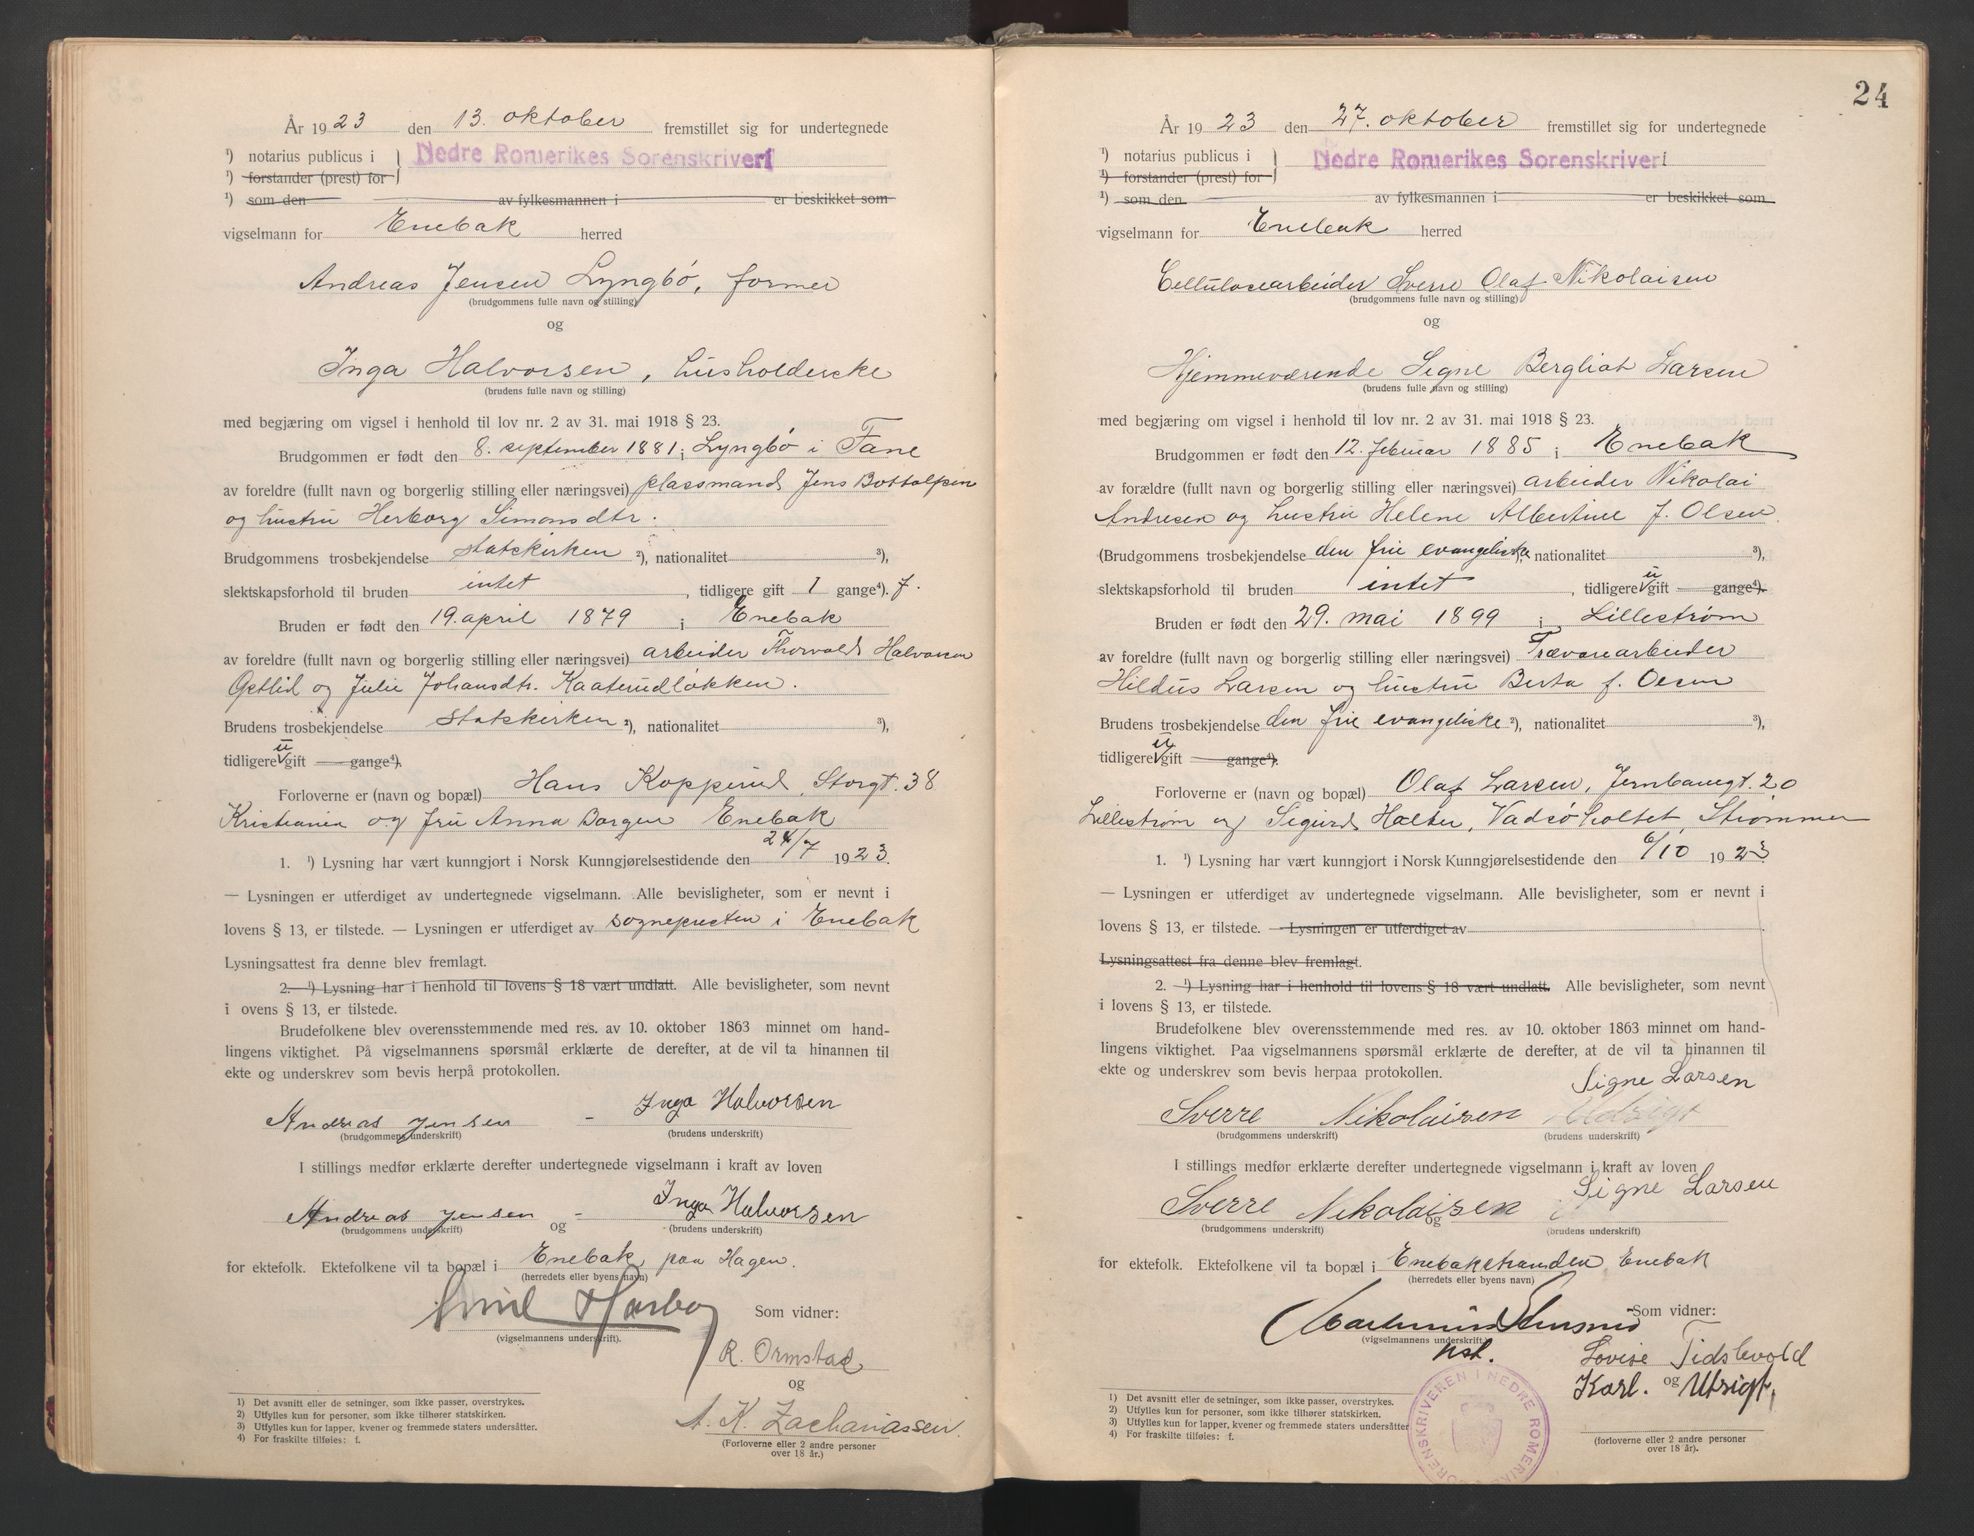 År 1923 den 13. oktober fremstillet sig for undertegnede
¹) notarius publicus i } Nedre Romerikes Sorenskriveri
¹) forstander (prest) for
¹) som den av fylkesmannen i er beskikket som
vigselmann for Enebak herred
Andreas Jensen Lyngbø, former
(brudgommens fulle navn og stilling)
og
Inga Halvorsen, husholderske
(brudens fulle navn og stilling)
med begjæring om vigsel i henhold til lov nr. 2 av 31. mai 1918 § 23.
Brudgommen er født den 8. september 1881 i Lyngbø i Fane
av foreldre (fullt navn og borgerlig stilling eller næringsvei) plassmand Jens Bottolfsen
og hustru Herborg Simonsdtr.
Brudgommens trosbekjendelse statskirken ²), nationalitet ³),
slektskapsforhold til bruden intet, tidligere gift 1 gange⁴). f.
Bruden er født den 19. april 1879 i Enebak
av foreldre (fullt navn og borgerlig stilling eller næringsvei) arbeider Thorvald Halvorsen
Getlid og Julie Johansdtr. Kaaterudløkken.
Brudens trosbekjendelse statskirken ²), nationalitet ³),
tidligere u gift gange⁴).
Forloverne er (navn og bopæl) Hans Kopperud, Storgt. 38
Kristiania og fru Anna Borgen Enebak
1. ¹) Lysning har vært kunngjort i Norsk Kunngjørelsestidende den 24/7 1923.
— Lysningen er utferdiget av undertegnede vigselmann. Alle bevisligheter, som er nevnt i
lovens § 13, er tilstede. — Lysningen er utferdiget av sognepresten i Enebak
Lysningsattest fra denne blev fremlagt.
2. ¹) Lysning har i henhold til lovens § 18 vært undlatt. Alle bevisligheter, som nevnt
i ovens § 13, er tilstede.
Brudefolkene blev overensstemmende med res. av 10. oktober 1863 minnet om hand-
lingens viktighet. På vigselmannens spørsmål erklærte de derefter, at de vil ta hinannen til
ekte og underskrev som bevis herpå protokollen.
Andreas Jensen - Inga Halvorsen
(brudgommens underskrift) (brudens underskrift)
I stillings medfør erklærte derefter undertegnede vigselmann i kraft av loven
Andreas Jensen og - Inga Halvorsen
(brudgommens underskrift) (brudens underskrift)
for ektefolk. Ektefolkene vil ta bopæl i Enebak paa Hagen.
(herredets eller byens navn)
Emil Harboe Som vidner:
(vigselmannens underskrift).
R. Ormstad
og
A. K. Zachariassen.
(Forloverne eller 2 andre personer
over 18 år.)
1) Det avsnitt eller de setninger, som ikke passer, overstrykes.
2) Utfylles kun for personer, som ikke tilhører statskirken.
3) Utfylles kun for lapper, kvener og fremmede staters undersåtter.
4) For fraskilte tilføies: f.
24
År 1923 den 27. oktober fremstillet sig for undertegnede
¹) notarius publicus i } Nedre Romerikes Sorenskriveri
¹) forstander (prest) for
¹) som den av fylkesmannen i er beskikket som
vigselmann for Enebak herred
Cellulosearbeider Sverre Olaf Nikolaisen
(brudgommens fulle navn og stilling)
og
Hjemmeværende Signe Bergliot Larsen
(brudens fulle navn og stilling)
med begjæring om vigsel i henhold til lov nr. 2 av 31. mai 1918 § 23.
Brudgommen er født den 12. februar 1885 i Enebak
av forældre (fullt navn og borgerlig stilling eller næringsvei) arbeider Nikolai
Andresen og hustru Helene Albertine f. Olsen.
(Brudgommens trosbekjendelse den frie evangeliske, nationalitet ³),
slektskapsforhold til bruden intet, tidligere u gift gange⁴).
Bruden er født den 29. mai 1899 i Lillestrøm
av foreldre (fullt navn og borgerlig stilling eller næringsvei) Trævarearbeider
Hildus Larsen og hustru Berta f. Olsen
Brudens trosbekjendelse den frie evangeliske ²), nationalitet ³),
tidligere u gift gange⁴).
Forloverne er (navn og bopæl) Olaf Larsen, Jernbanegt. 20
Lillestrøm og Sigurd Halter, Vadsøholtet, Strømmen
1. ¹) Lysning har vært kunngjort i Norsk Kunngjørelsestidende den 6/10 1923
— Lysningen er utferdiget av undertegnede vigselmann. Alle bevisligheter, som er nevnt i
lovens § 13, er tilstede. — Lysningen er utferdiget av
Lysningsattest fra denne blev fremlagt.
2. ¹) Lysning har i henhold til lovens § 18 vært undlatt. Alle bevisligheter, som nevnt
i lovens § 13, er tilstede.
Brudefolkene blev overensstemmende med res. av 10. oktober 1863 minnet om hand-
lingens viktighet. Paa vigselmannens spørsmål erklærte de derefter, at de vil ta hinannen til
ekte og underskrev som bevis herpaa protokollen.
Signe Larsen
Sverre Nikolaisen
(brudgommens underskrift) (brudens underskrift)
I stillings medfør erklærte derefter undertegnede vigselmann i kraft av loven
Sverre Nikolaisen og Signe Larsen
(brudgommens underskrift) (brudens underskrift)
for ektefolk. Ektefolkene vil ta bopæl i Enebakstranden Enebak
(herredets eller byens navn)
Som vidner:
(vigselmannens underskrift)
Lovise Tidslevold
Karl. og Utsigt,
(forloverne eller 2 andre personer
over 18 år).
1) Det avsnitt eller de setninger, som ikke passer, overstrykes.
2) Utfylles kun for personer, som ikke tilhører statskirken.
3) Utfylles kun for lapper, kvener og fremmede staters undersåtter
4) For fraskilte tilføies: f.
SORENSKRIVEREN I NEDRE ROMERIKE